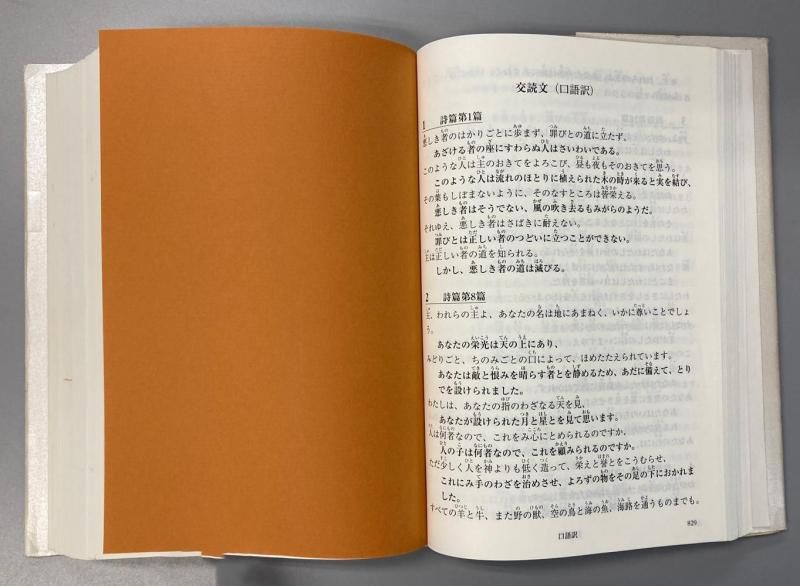 交読文（口語訳）
1　詩篇第1篇
悪しき者のはかりごとに歩まず、罪びとの道に立たず、
あざける者の座にすわらぬ人はさいわいである。
このような人は主のおきてをよろこび、昼も夜もそのおきてを思う。
このような人は流れのほとりに植えられた木の時が来ると実を結び、
その葉もしぼまないように、そのなすところは皆栄える。
悪しき者はそうでない、風の吹き去るもみがらのようだ。
それゆえ、悪しき者はさばきに耐えない。
罪びとは正しい者のつどいに立つことができない。
主は正しい者の道を知られる。
しかし、悪しき者の道は滅びる。
2　詩篇第8篇
主、われらの主よ、あなたの名は地にあまねく、いかに尊いことでしょ
う。
あなたの栄光は天の上にあり、
みどりごと、ちのみごとの口によって、ほめたたえられています。
あなたは敵と恨みを晴らす者とを静めるため、あだに備えて、とり
でを設けられました。
わたしは、あなたの指のわざなる天を見、
あなたが設けられた月と星とを見て思います。
人は何者なので、これをみ心にとめられるのですか、
人の子は何者なので、これを顧みられるのですか。
ただ少しく人を神よりも低く造って、栄えと誉とをこうむらせ、
これにみ手のわざを治めさせ、よろずの物をその足の下におかれま
した。
すべての羊と牛、また野の獣、空の鳥と海の魚、海路を通うものまでも。
829
口語訳